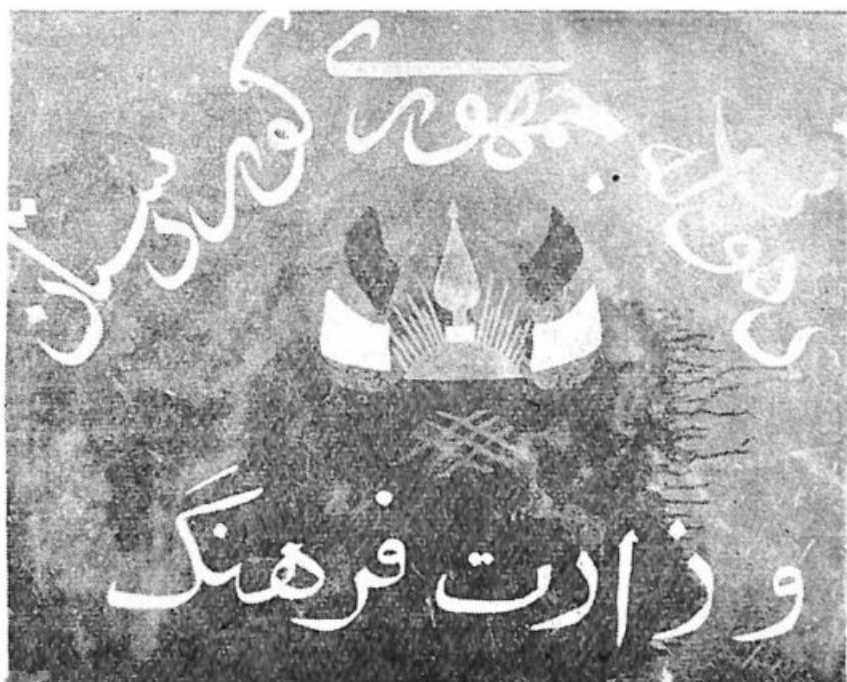 جمهوری کوردستان
وزارت فرهنگ